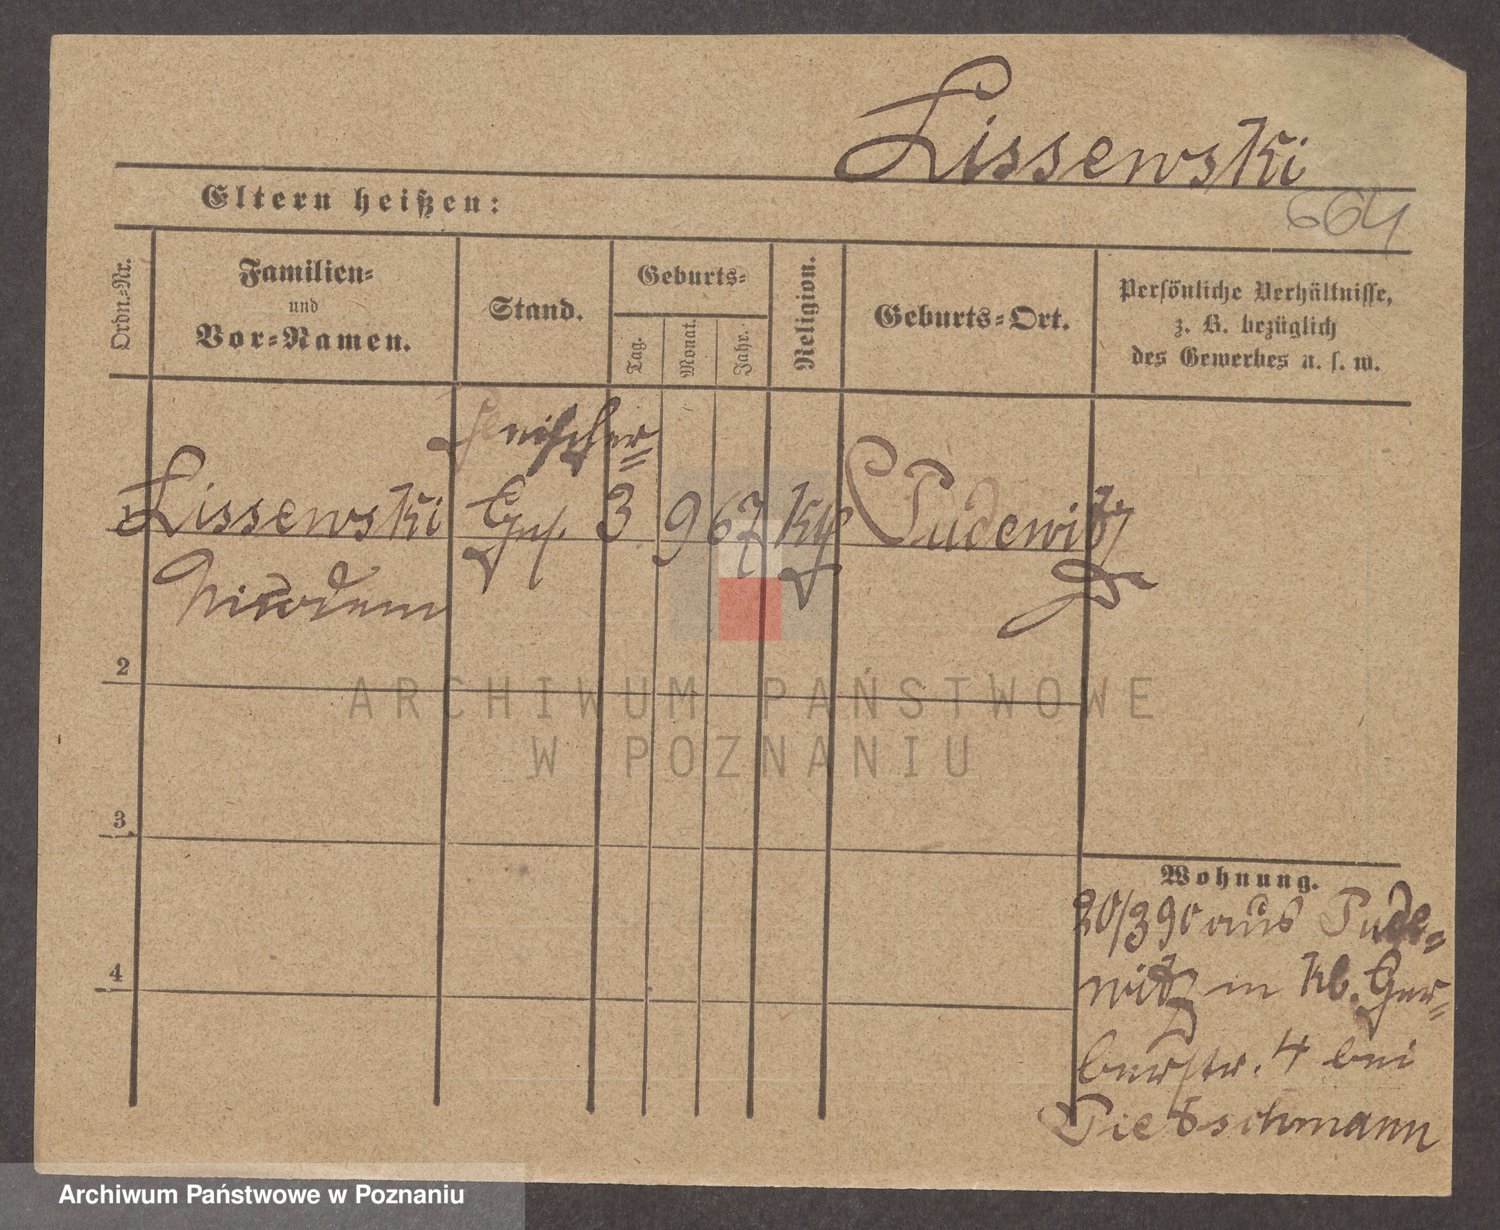 Lissewski
664
Eltern heißen:
Ordn.-Nr.
Familien-
und
Vor-Namen.
Stand.
Geburts-
Tag.
Monat.
Jahr.
Religion.
Geburts-Ort.
Persönliche Verhältnisse,
z. B. bezüglich
des Gewerbes u. s. w.
Fleischer-
Lissewski Ges. 3 9 67 kth Pudewitz
Nicodem
2
3
4
Wohnung.
20/3 90 aus Pude-
witz in kl. Ger-
berstr. 4 bei
Pietschmann
ARCHIWUM PAŃSTWOWE
W POZNANIU
Archiwum Państwowe w Poznaniu